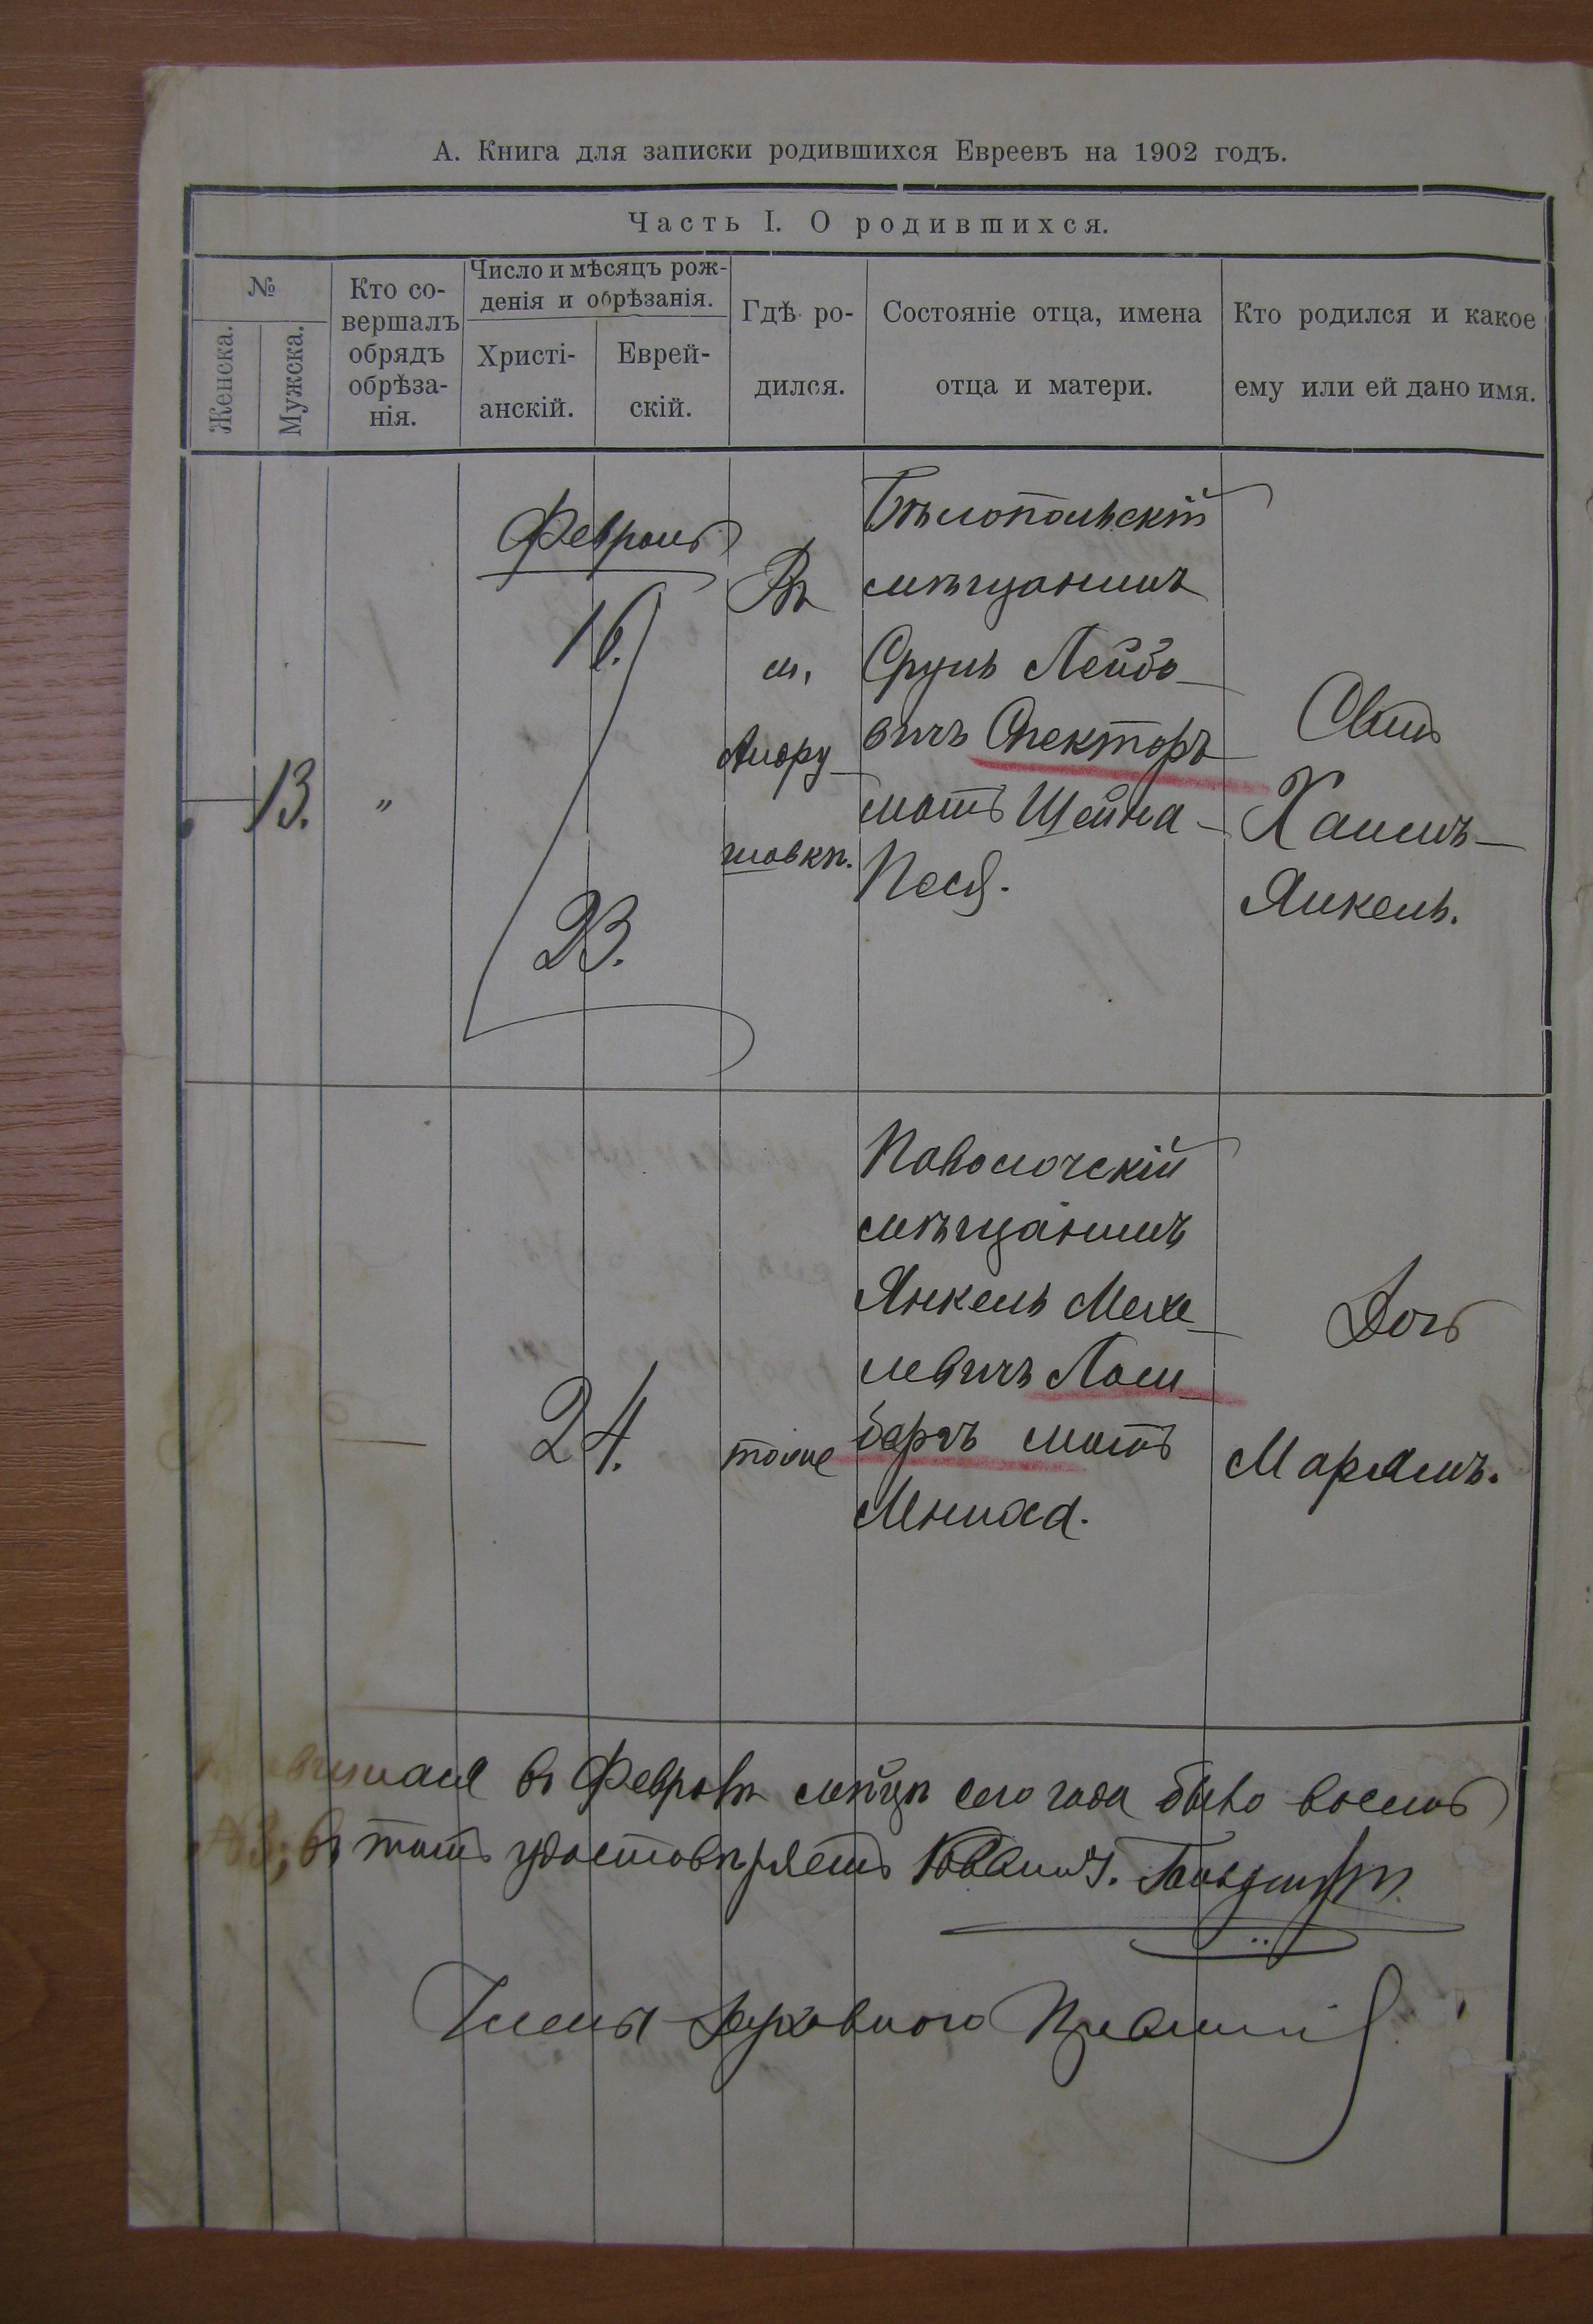 А. Книга для записки родившихся Евреевъ на 1902 годъ.
Часть I. О родившихся.
№
Женска.
Мужска.
Кто со-
вершалъ
обрядъ
обрѣза-
нія.
Число и мѣсяцъ рож-
денія и обрѣзанія.
Христі-
анскій.
Еврей-
скій.
Гдѣ ро-
дился.
Состояніе отца, имена
отца и матери.
Кто родился и какое
ему или ей дано имя.
13.
"
Февраль
16.
23.
Въ
м.
Андру
шовкѣ.
Бѣлопольскій
мѣщанинъ
Сруль Лейбо-
вичъ Спекторъ
мать Шейна-
Песя.
Сынъ
Хаимъ-
Янкель.
24.
тоже
Паволочскій
мѣщанинъ
Янкель Мехе-
левичъ Лам
бергъ мать
Мниха.
Дочь
Марьямъ.
въ Февралѣ мѣсяцѣ сего года было восемь
въ томъ удостовѣряетъ
Члены Духовного Правленія